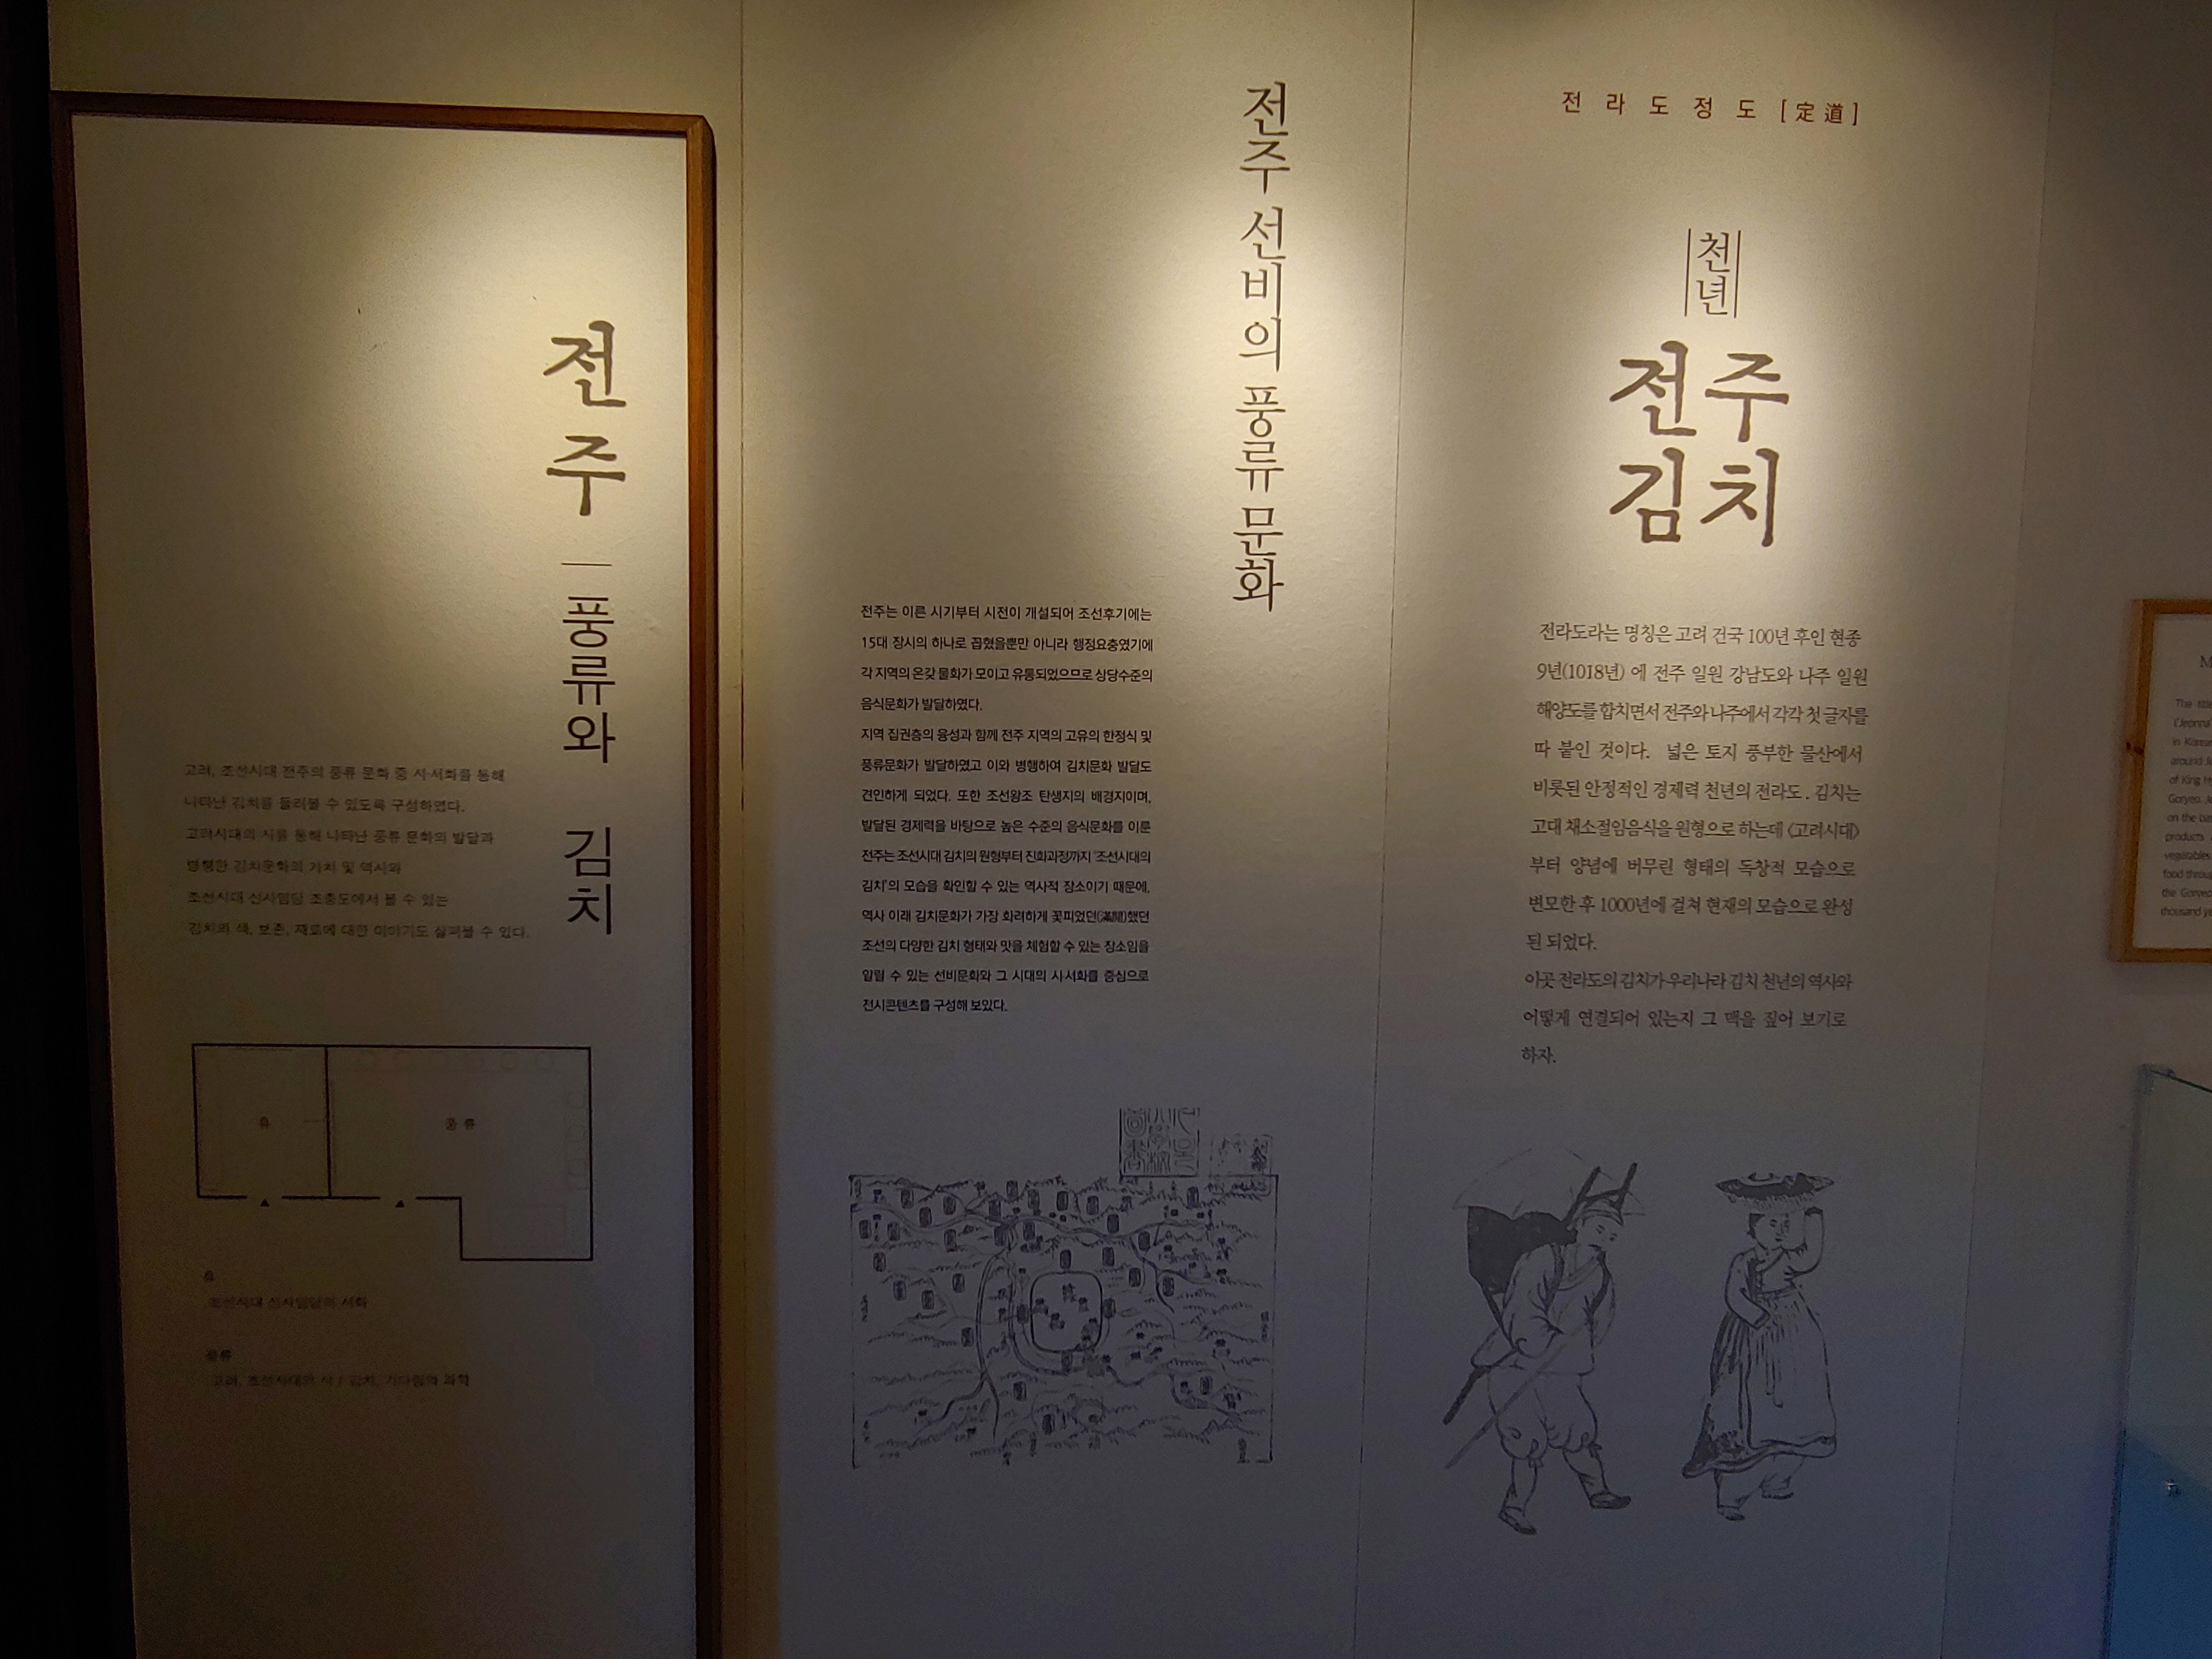 전주
풍류와 김치
고려, 조선시대 전주의 풍류 문화 중 시·서화를 통해
나타난 김치를 둘러볼 수 있도록 구성하였다.
고려시대의 시를 통해 나타난 풍류 문화의 발달과
병행한 김치문화의 가치 및 역사와
조선시대 신사임당 조충도에서 볼 수 있는
김치의 색, 보존, 재료에 대한 이야기도 살펴볼 수 있다.
유
풍류
유
조선시대 신사임당의 서화
풍류
고려, 조선시대의 시 / 김치, 기다림의 과학
전주 선비의 풍류 문화
전주는 이른 시기부터 시전이 개설되어 조선후기에는
15대 장시의 하나로 꼽혔을뿐만 아니라 행정요충였기에
각 지역의 온갖 물화가 모이고 유통되었으므로 상당수준의
음식문화가 발달하였다.
지역 집권층의 융성과 함께 전주 지역의 고유의 한정식 및
풍류문화가 발달하였고 이와 병행하여 김치문화 발달도
견인하게 되었다. 또한 조선왕조 탄생지의 배경지이며,
발달된 경제력을 바탕으로 높은 수준의 음식문화를 이룬
전주는 조선시대 김치의 원형부터 진화과정까지 '조선시대의
김치'의 모습을 확인할 수 있는 역사적 장소이기 때문에,
역사 이래 김치문화가 가장 화려하게 꽃피었던(滿開)했던
조선의 다양한 김치 형태와 맛을 체험할 수 있는 장소임을
알릴 수 있는 선비문화와 그 시대의 시서화를 중심으로
전시콘텐츠를 구성해 보았다.
전라도정도[定道]
천년
전주
김치
전라도라는 명칭은 고려 건국 100년 후인 현종
9년(1018년) 에 전주 일원 강남도와 나주 일원
해양도를 합치면서 전주와 나주에서 각각 첫 글자를
따 붙인 것이다. 넓은 토지 풍부한 물산에서
비롯된 안정적인 경제력 천년의 전라도. 김치는
고대 채소절임음식을 원형으로 하는데 <고려시대>
부터 양념에 버무린 형태의 독창적 모습으로
변모한 후 1000년에 걸쳐 현재의 모습으로 완성
된 되었다.
이곳 전라도의 김치가 우리나라 김치 천년의 역사와
어떻게 연결되어 있는지 그 맥을 짚어 보기로
하자.
M
The title
('Jeonna'
in Korean
around Je
of King Hy
Goryeo. Je
on the bas
products
vegetables
food throug
the Goryeo
thousand ye